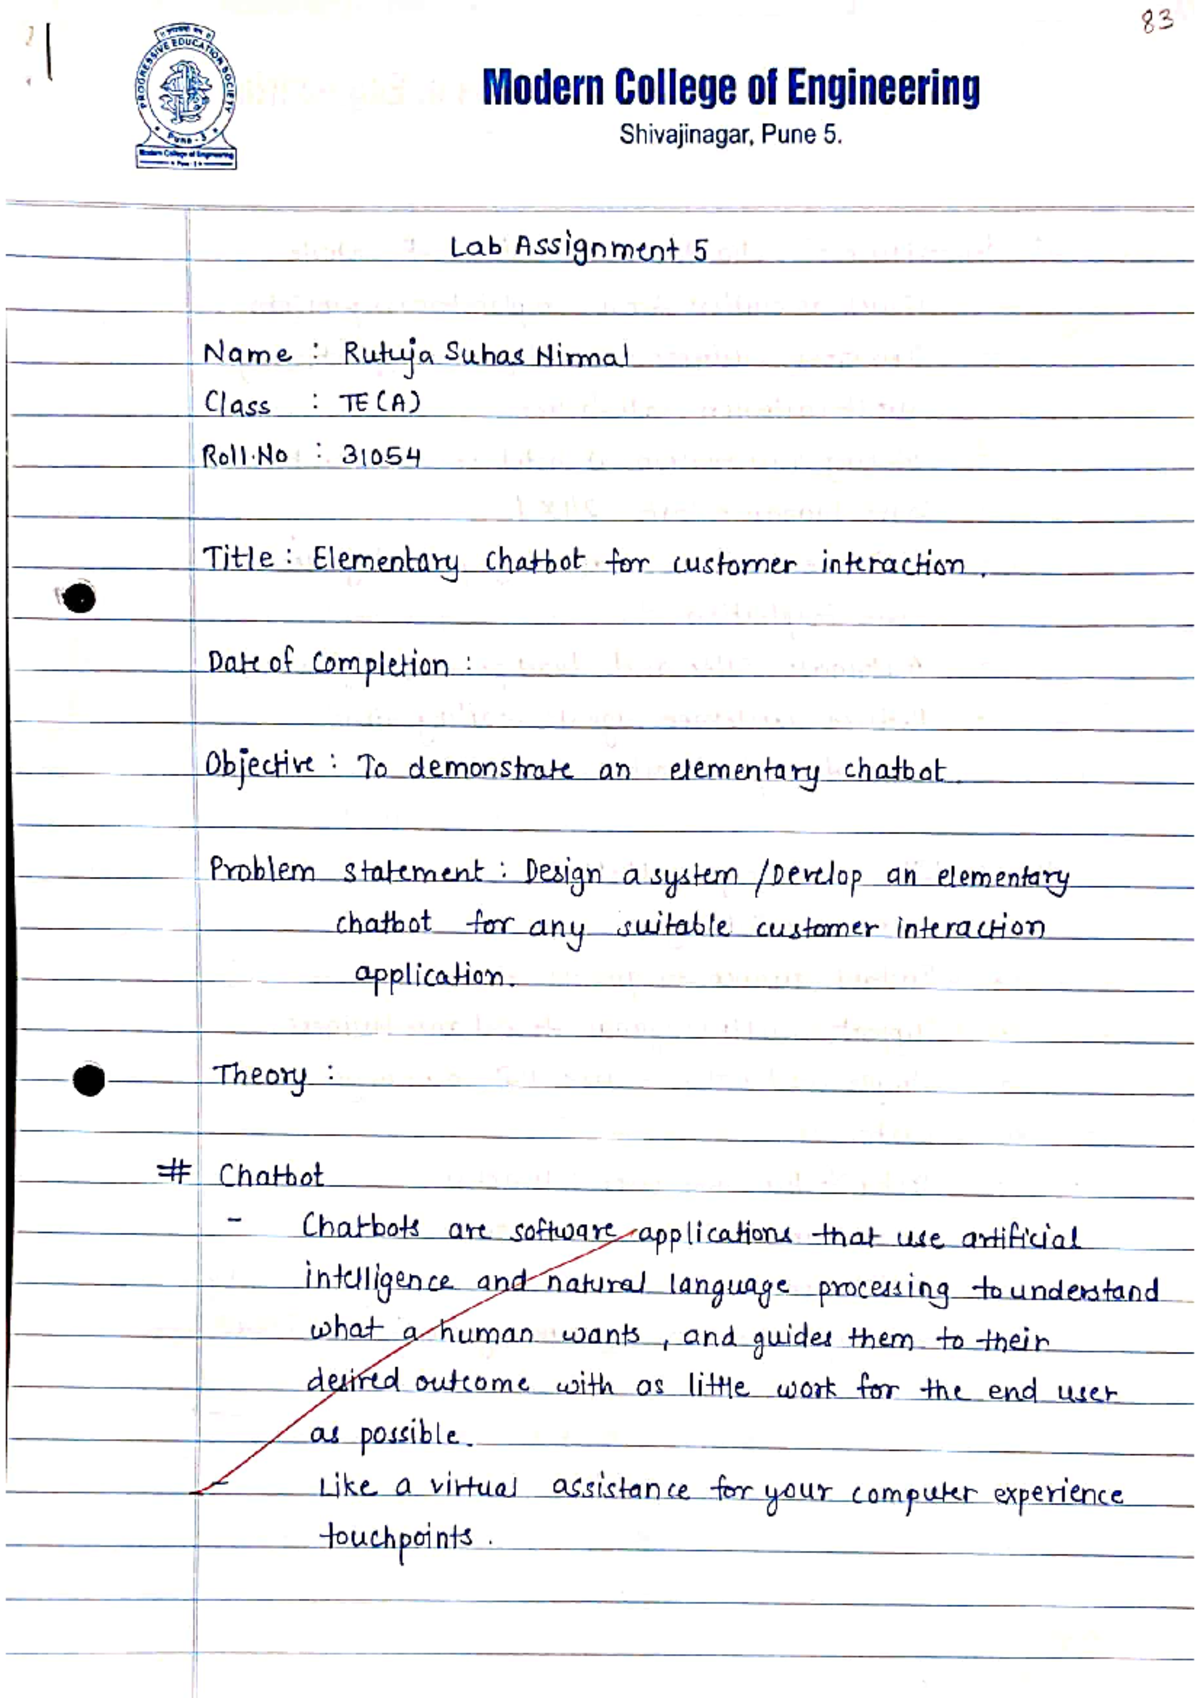 83
PROGRESSIVE EDUCATION SOCIETY
Pune - 5
Modern College of Engineering
Modern College of Engineering
Shivajinagar, Pune 5.
Lab Assignment 5
Name : Rutuja Suhas Nirmal
Class : TE (A)
Roll.No : 31054
Title : Elementary chatbot for customer interaction.
Date of completion :
Objective : To demonstrate an elementary chatbot
Problem statement : Design a system / Develop an elementary
chatbot for any suitable customer interaction
application.
Theory :
# Chatbot
- Chatbots are software applications that use artificial
intelligence and natural language processing to understand
what a human wants, and guides them to their
desired outcome with as little work for the end user
as possible.
- Like a virtual assistance for your computer experience
touchpoints.